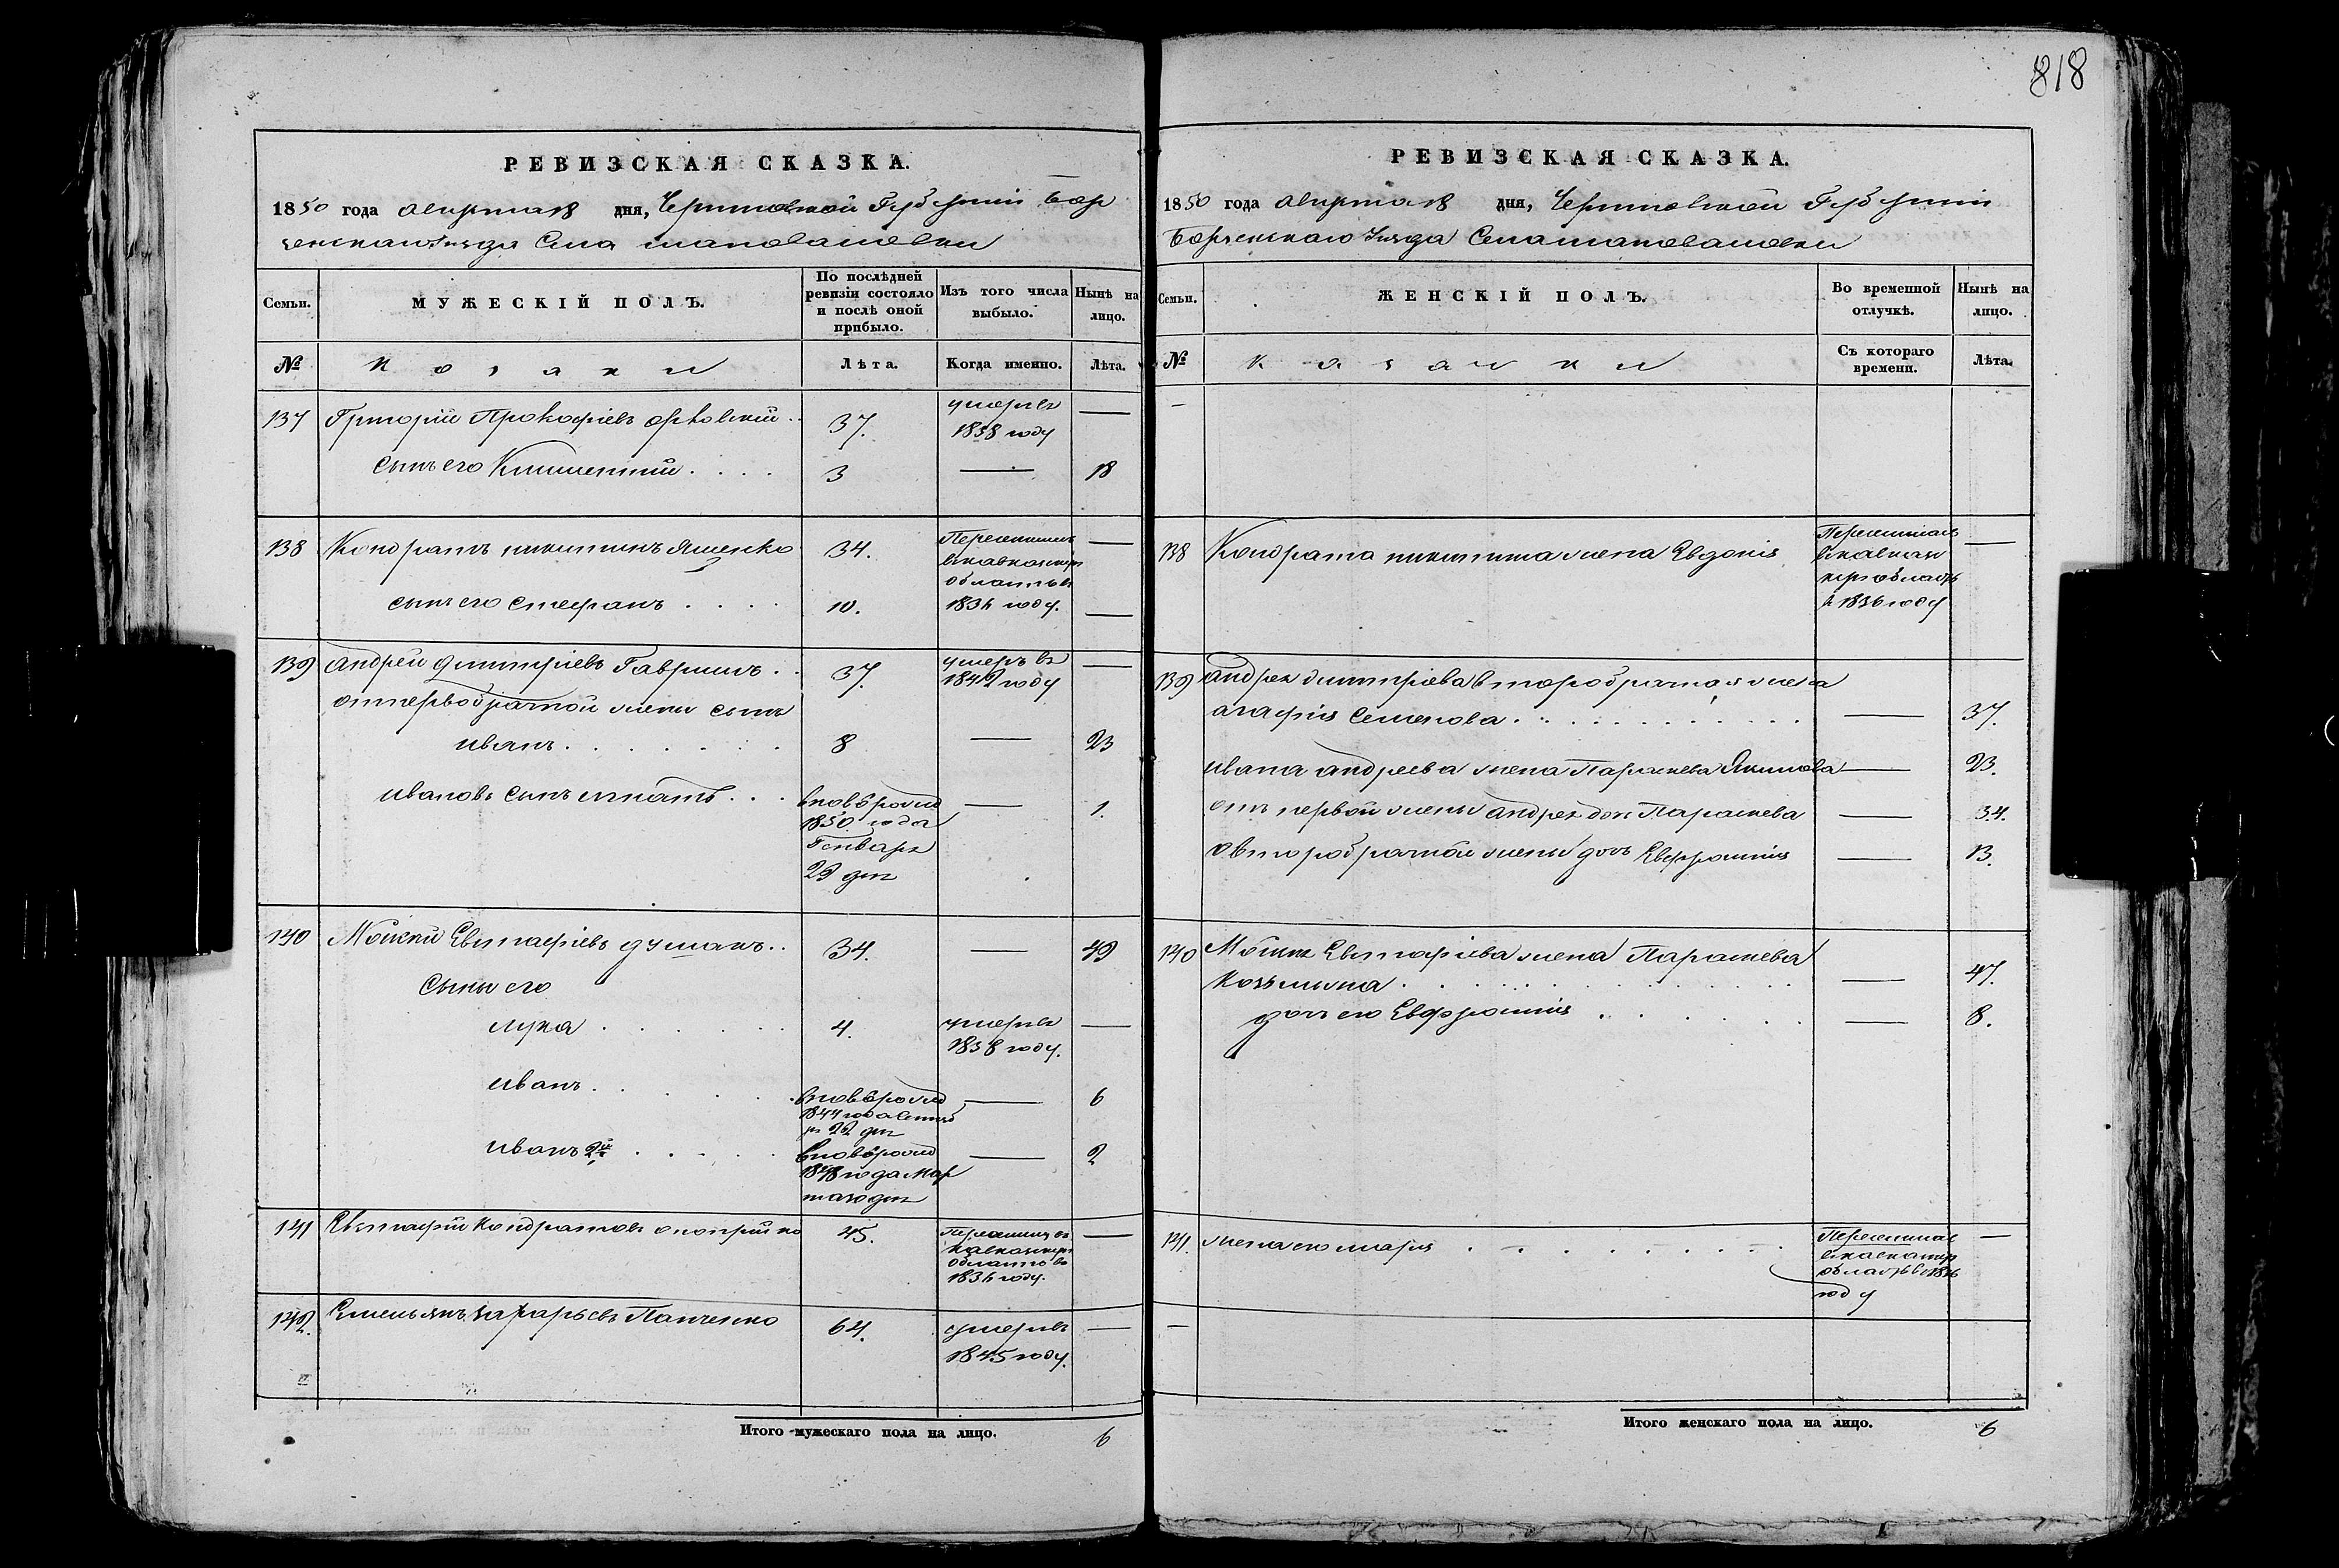 818
РЕВИЗСКАЯ СКАЗКА.
1850 года августа 18 дня, Черниговской Губернии Бор
зенскаго Уезда Села
МУЖЕСКІЙ ПОЛЪ.
Семьи.
По послѣдней
ревизіи состояло
и послѣ оной
прибыло.
Изъ того числа
выбыло.
Нынѣ на
лицо.
№
Козаки
Лѣта.
Когда именно.
Лѣта.
137 Григорій Прокофіевъ 37. умеръ въ —
1838 году
сынъ его Климентій 3 — 18
138 Кондратъ Никитинъ Яценко 34. Переселился —
въ кавказскую
область въ
сынъ его Стефанъ 10. 1836 году. —
139 Андрей Дмитріевъ Гавришъ 37. умеръ въ —
1842 году
отъ первобрачной жены сынъ
Иванъ 8 — 23
Ивановъ сынъ Игнатъ вновь рожд — 1.
1850 года
Генваря
29 дня
140 Мойсей Евстафіевъ Думанъ 34. — 49
Сыны его
Лука 4. умеръ въ —
1838 году.
Иванъ вновь рожд — 6
1844 года Сентяб
ря 22 дня
Иванъ 2й вновь рожд — 2
1848 года Мар
та 30 дня
141 Евстафій Кондратовъ 45. Переселился въ —
кавказскую
область въ
1836 году.
142. Емельянъ Захарьевъ Панченко 64. умеръ въ —
1845 году.
Итого мужескаго пола на лицо. 6
РЕВИЗСКАЯ СКАЗКА.
1850 года августа 18 дня, Черниговской Губерніи
Борзенскаго Уезда Села
Семьи.
ЖЕНСКІЙ ПОЛЪ.
Во временной
отлучкѣ.
Нынѣ на
лицо.
№
Козачки
Съ котораго
времени.
Лѣта.
—
138 Кондрата Никитина жена Евдокія Переселилась —
въ кавказс
кую область
в 1836 году
139 Андрея Дмитріева второбрачная жена
Агафія Семенова — 37.
Ивана Андреева жена Параскева Якимова — 23.
отъ первой жены Андрея дочь Параскева — 34.
от второбрачной жены дочь Евфросинія — 13.
140 Мойсея Евстафіева жена Параскева
Козьмина — 47.
дочь его Евфросинія — 8.
141. жена его Марія Переселилась —
въ кавказскую
область въ 1836
году
—
Итого женскаго пола на лицо. 6